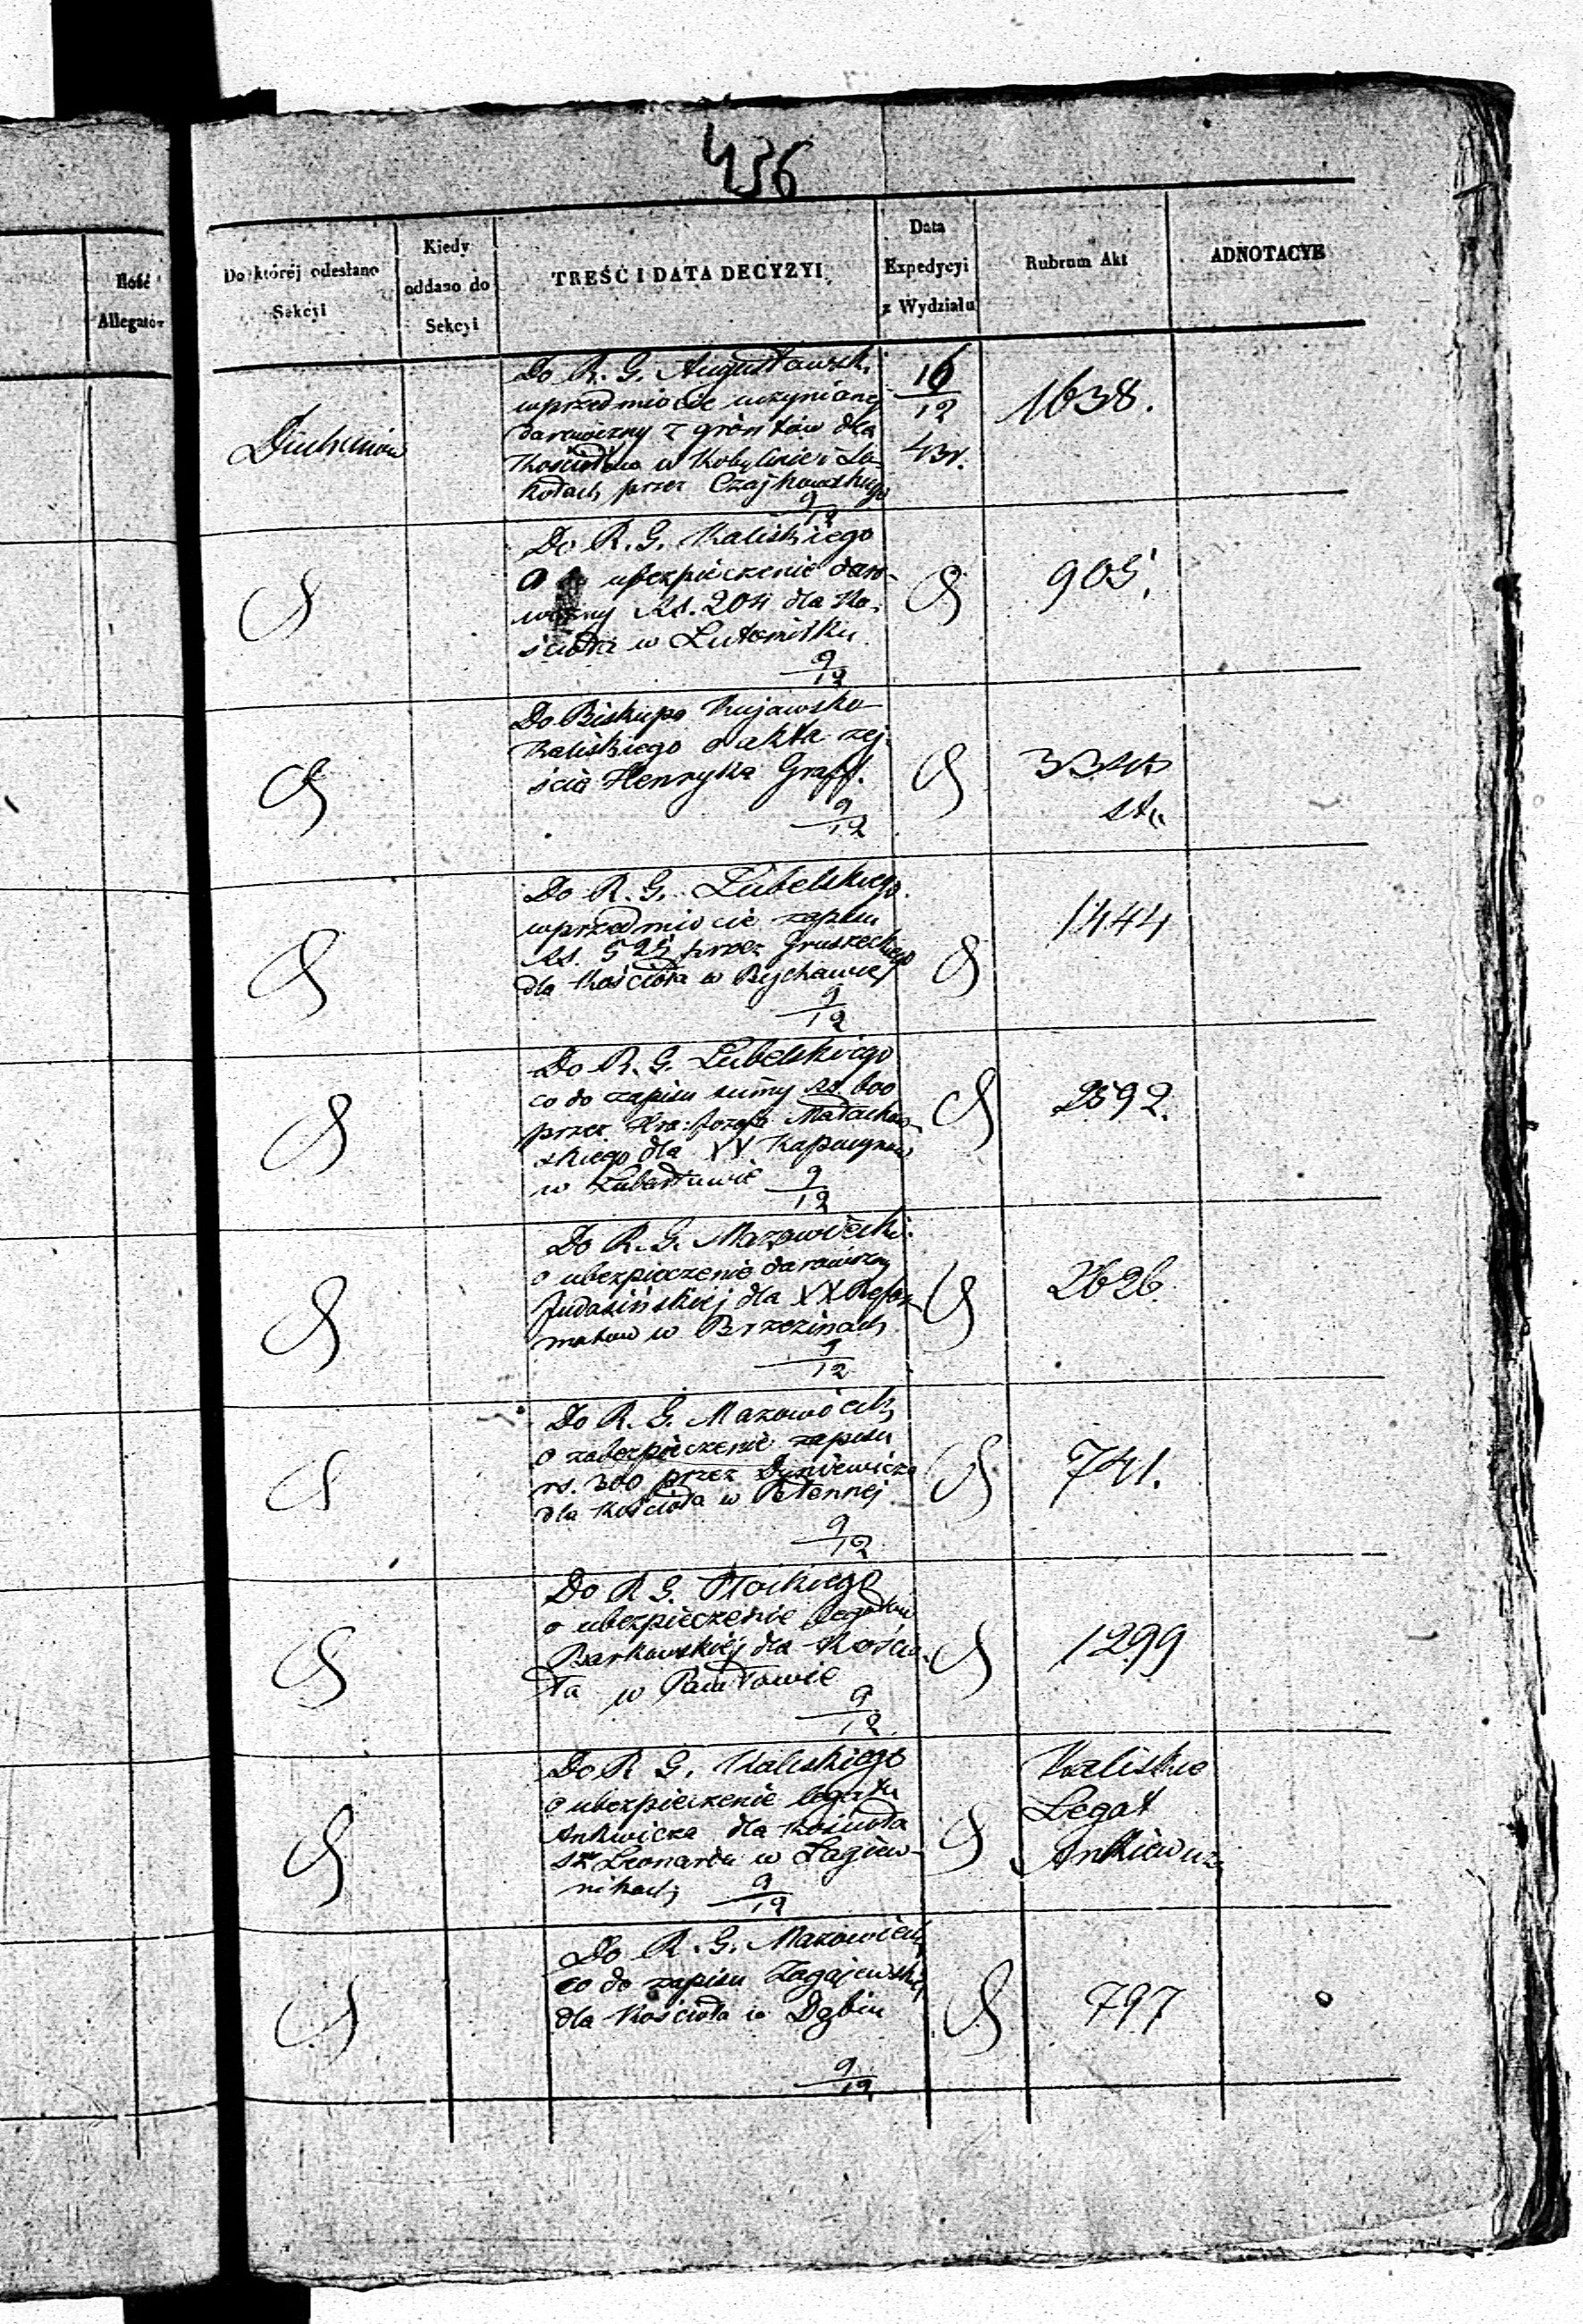 436
Ilość
Allegatów
Do której odesłano
Sekcyi
Kiedy
oddano do
Sekcyi
TREŚĆ I DATA DECYZYI
Data
Expedycyi
z Wydziału
Rubrum Akt
ADNOTACYE
Do R. G. Augustowsk.
w przedmiocie uczynionej
darowizny z gróntów dla
Kościoła w Kobylinie i
przez Czajkowskiego
9/12
16/12
43r.
1638.
Do R. G. Kaliskiego
o ubezpieczenie daro-
wizny Rs. 204 dla Ko-
ścioła w Lutomirsku
9/12
905.
Do Biskupa Kujawsko
Kaliskiego o akta zej-
ścia Henryka Graff.
9/12
Do R. G. Lubelskiego
w przedmiocie zapisu
Rs. 525 przez Gruszeckiego
dla Kościoła w Bychawie
9/12
1444
Do R. G. Lubelskiego
co do zapisu sumy rs. 600
przez Hra: Józefa Małachow-
skiego dla XX Kapucynów
w Lubartowie 9/12
2592.
Do R. G. Mazowiecki.
o ubezpieczenie darowizny
dla XX Refor-
matów w Brzezinach
9/12
2626.
Do R. G. Mazowieck
o zabezpieczenie zapisu
rs. 300 przez Dyniewicza
dla Kościoła w
9/12
741.
Do R G. Płockiego
o ubezpieczenie legatu
Barkowskiej dla Kościo-
ła w Pawłowie
9/12
1299
Do R G. Kaliskiego
o ubezpieczenie legatu
Ankwicza dla Kościoła
Sgo Leonarda w Łagiew-
nikach 9/12
Kaliskie
Legat
Ankiewicz
Do R. G. Mazowieck
co do zapisu Zagajewskiej
dla Kościoła w Dąbiu
9/12
797